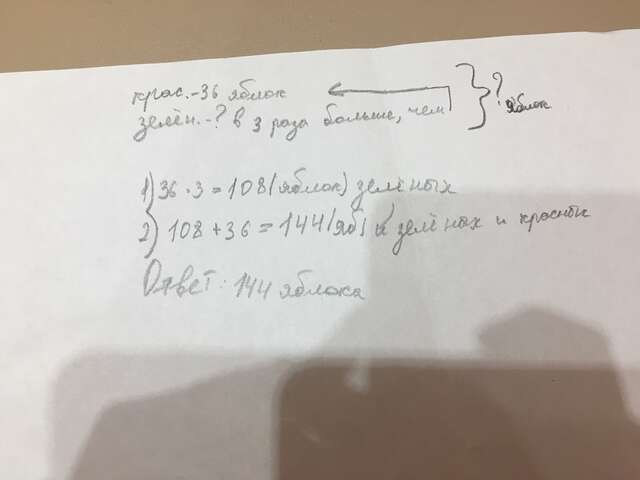 крас. - 36 яблок
зелён. - ? в 3 раза больше, чем
? яблок
1) 36 · 3 = 108 (яблок) зелёных
2) 108 + 36 = 144 (яб) и зелёных и красных
Ответ: 144 яблока